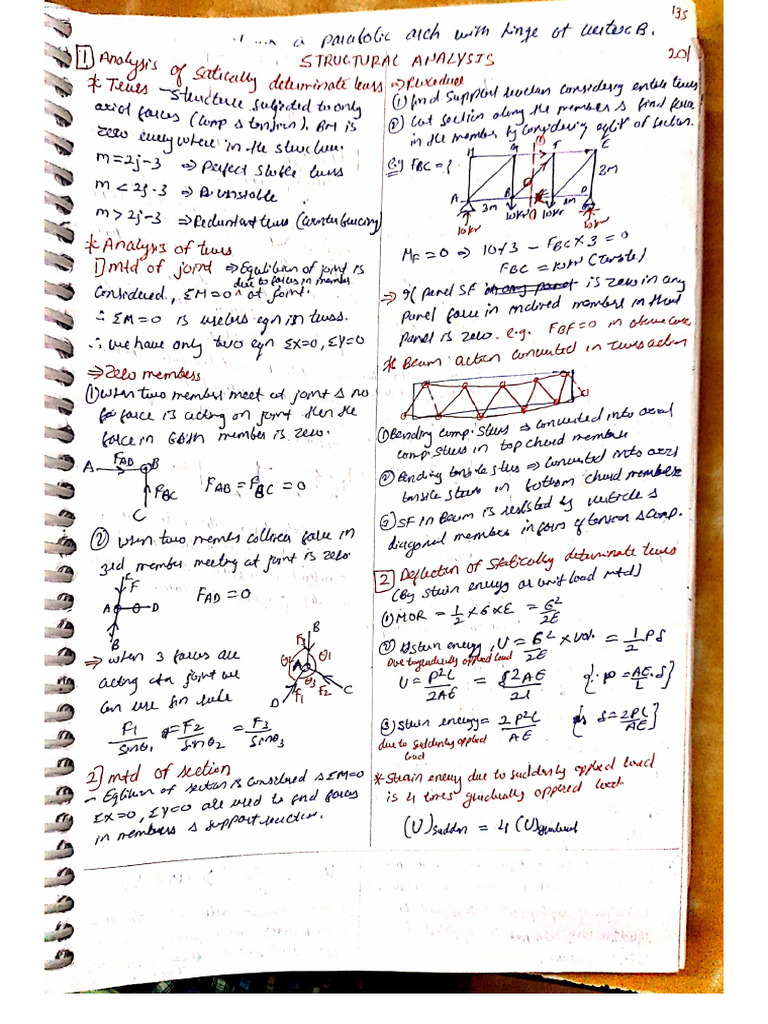 a parabolic arch with hinge at vertex B.
135
STRUCTURAL ANALYSIS
201
1 Analysis of satically determinate truss
* Truss - Structure subjected to only
axial forces (comp & tension). BM is
zero every where in the structure.
m = 2j - 3 ⇒ Perfect stable truss
m < 2j - 3 ⇒ unstable
m > 2j - 3 ⇒ Redundant truss (Counter bracing)
* Analysis of truss
1] mtd of joint ⇒ Eqilibion of joint is
due to forces in member
Considered, ΣM=0 at joint.
∴ ΣM=0 is useless eqn in truss.
∴ we have only two eqn ΣX=0, ΣY=0
⇒ Zero members
① when two members meet at joint & no
force is acting on joint then the
force in both member is zero.
A FAB B
FBC FAB = FBC = 0
C
② when two members collinear force in
3rd member meeting at joint is zero
F
F
A D FAD = 0
B
⇒ when 3 forces are
acting at a joint we
can use sin rule
B
F3
θ2 θ1
A
θ3
F1 F2
D C
F1/Sinθ1 = F2/Sinθ2 = F3/Sinθ3
2) mtd of section
- Eqlibion of section is considered & ΣM=0
ΣX=0, ΣY=0 are used to find forces
in members & support reaction.
⇒ Procedure
① find support reaction considering entire truss
② Cut section along the member & find force
in the member by considering eqlbt of section.
e.g FBC = ?
H G F E
3m
A B C D
3m 3m
10kN 10kN 10kN 10kN
MF = 0 ⇒ 10×3 - FBC × 3 = 0
FBC = 10kN (Tensile)
⇒ If panel SF is zero in any
panel force in inclined members in that
panel is zero. e.g. FBF = 0 in above case
* Beam action converted in Truss action
① Bending comp. stress ⇒ converted into axial
comp stress in top chord member
② Bending tensile stress ⇒ converted into axial
tensile stress in bottom chord member
③ SF in Beam is resisted by verticle &
diagonal member in form of tension & comp.
2 Deflection of statically determinate truss
(By strain energy or unit load mtd)
① MOR = 1/2 × б × E = б²/2E
② Strain energy, U = б²/2E × vol. = 1/2 Pδ
Due to gradually applied load
U = P²L/2AE = δ²AE/2L {∵ P = AE/L . δ}
③ Strain energy = 2P²L/AE {∵ δ = 2PL/AE}
due to suddenly applied
load
* Strain energy due to suddenly applied load
is 4 times gradually applied load
(U)sudden = 4 (U)gradual